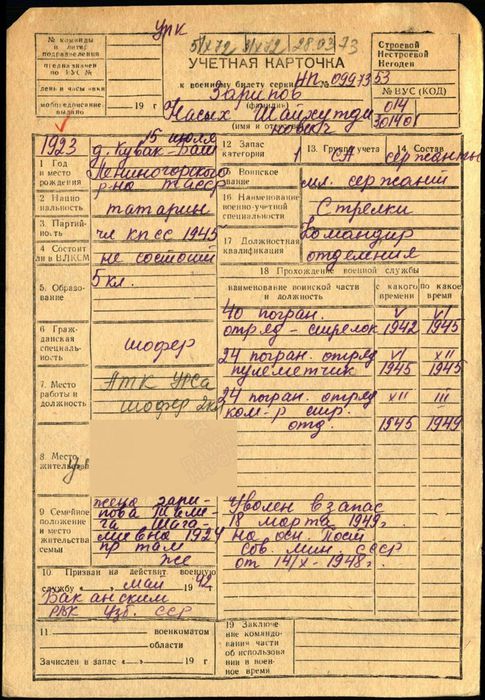 упк
5/IX72 3/X72 28.03.73
№ команды и литер подразделения
предназначен по ВУС №
день и часы явки
мобпредписание выдано
19 г
УЧЕТНАЯ КАРТОЧКА
к военному билету серии НП № 0997353
Зарипов
(фамилия)
Насых Шайхутди
(имя и отчество)
нович
Строевой
Нестроевой
Негоден
№ ВУС (КОД)
014
301401
1923
15 июля
д. Кувак-Баш
Лениногорского
р-на ТАССР
1 Год и место рождения
2 Национальность
татарин
3 Партийность
чл КПСС 1945
4 Состоит ли в ВЛКСМ
не состоит
5. Образование
5 кл.
6 Гражданская специальность
шофер
7. Место работы и должность
АТК
шофер 2кл
8. Место жительства
9 Семейное положение и место жительства семьи
жена Зари-
пова
1924
пр там
же
10 Призван на действит военную службу « » май 1942
РВК Узб. ССР
11. военкоматом
области
Зачислен в запас « » 19 г
12 Запас категория
1
13. Группа учета
СА
14 Состав
сержанты
15 Воинское звание
мл. сержант
16 Наименование военно-учетной специальности
Стрелки
17 Должностная квалификация
Командир
отделения
18 Прохождение военной службы
наименование воинской части и должность
с какого времени
по какое время
40 погран.
отряд - стрелок
V 1942
VI 1945
24 погран. отряд
пулеметчик
VI 1945
XII 1945
24 погран. отряд
ком-р стр.
отд.
XII 1945
III 1949
Уволен в запас
18 марта 1949г.
на осн. Пост
Сов. Мин. СССР
от 14/X-1948г.
19 Заключение командования части об использовании в военное время